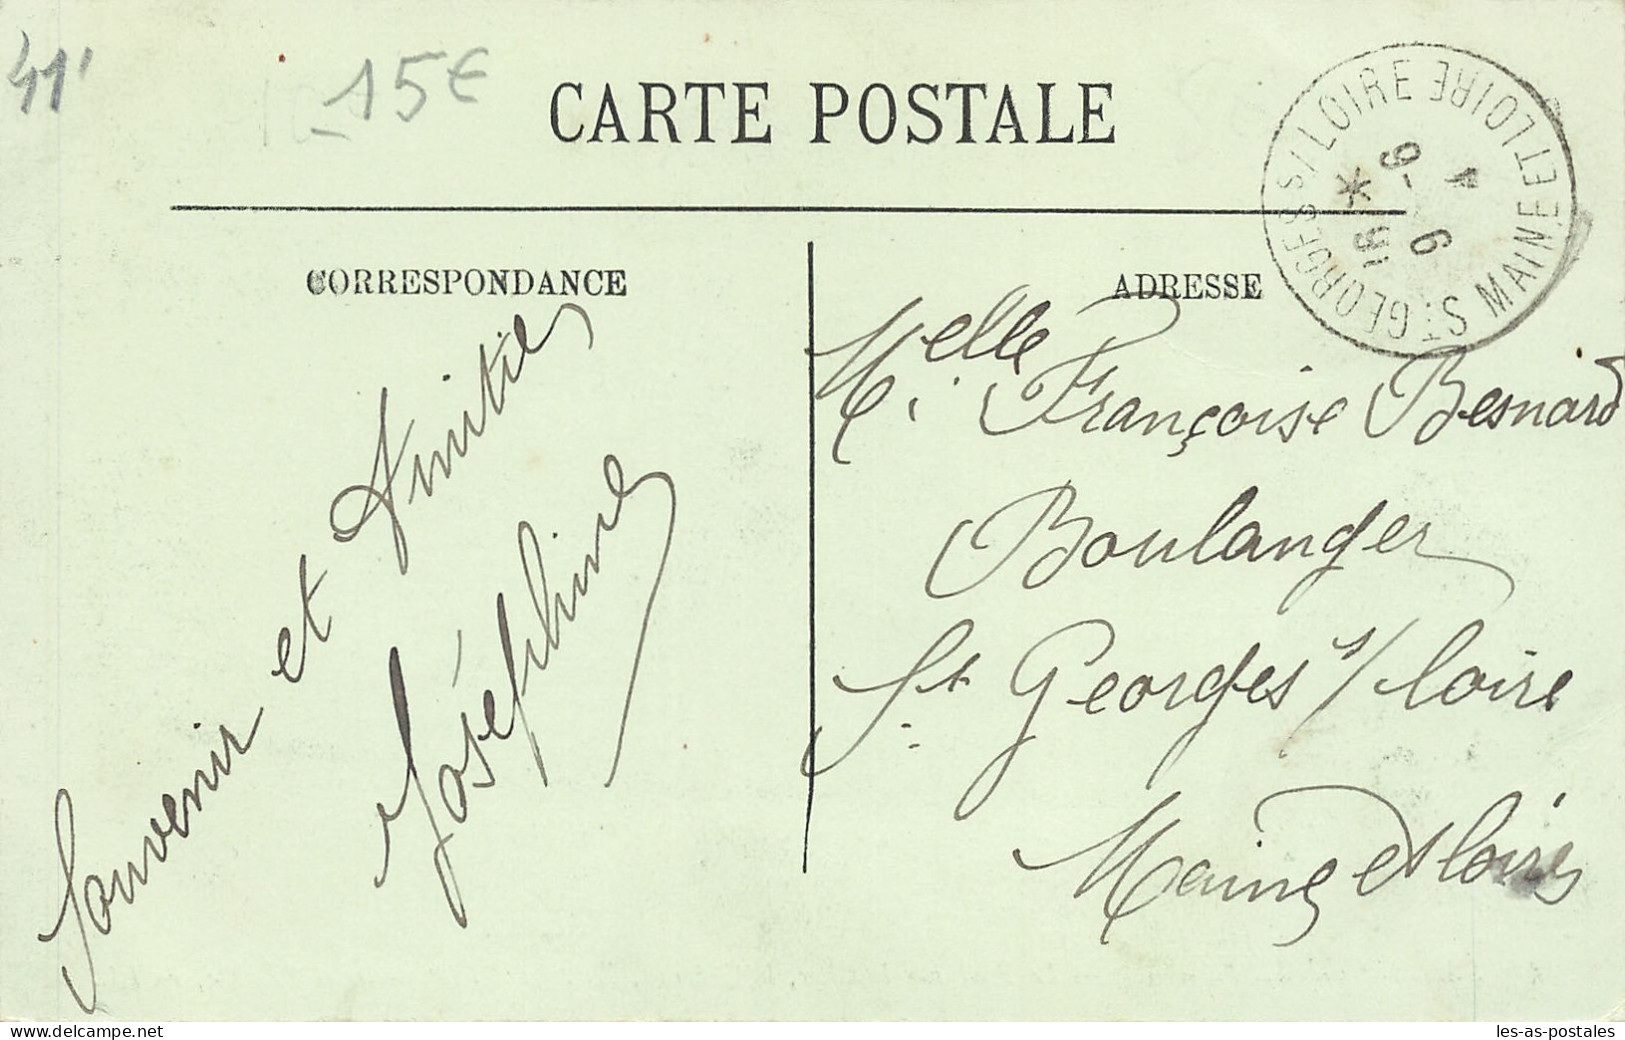 41'
15€
CARTE POSTALE
ST GEORGES S/ LOIRE
MAINE ET LOIRE
CORRESPONDANCE
ADRESSE
Souvenir et Amitiés
Joséphine
Melle Françoise Besnard
Boulanger
St Georges s/ loire
Maine et loire
les-as-postales
www.delcampe.net